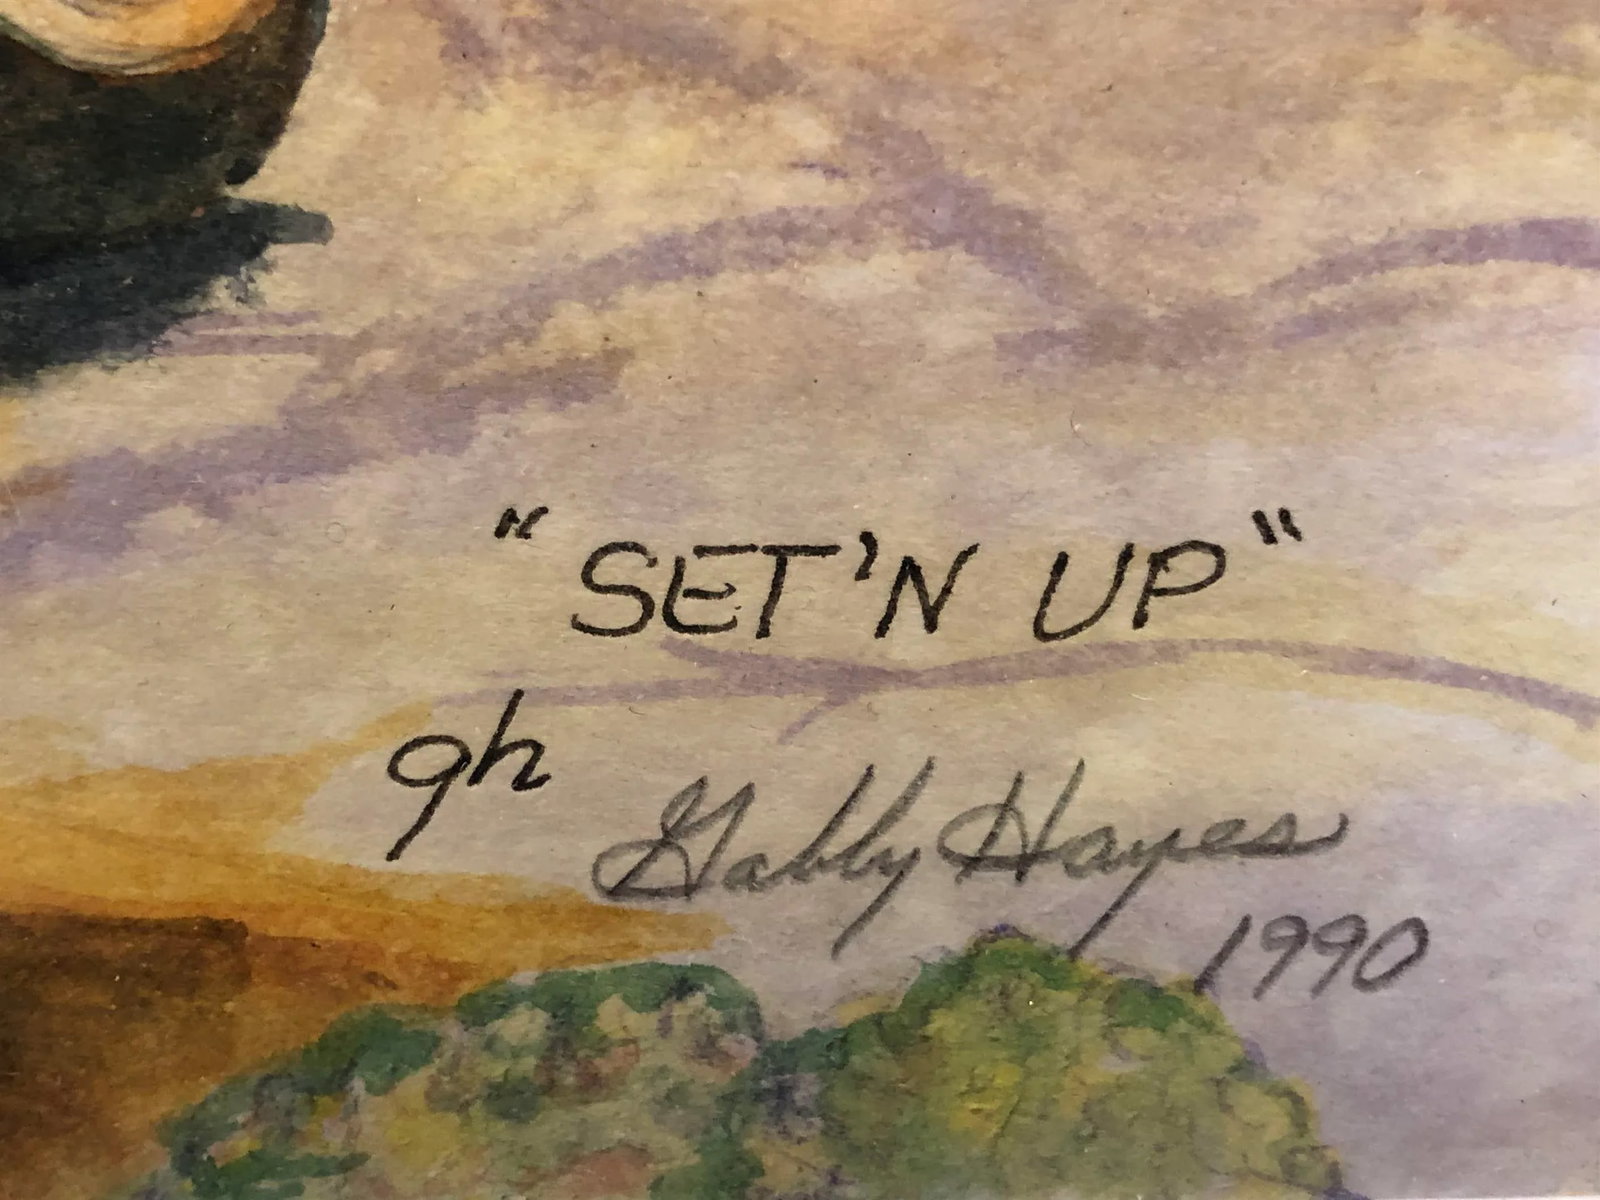 "SET'N UP"
gh
Gabby Hayes
1990